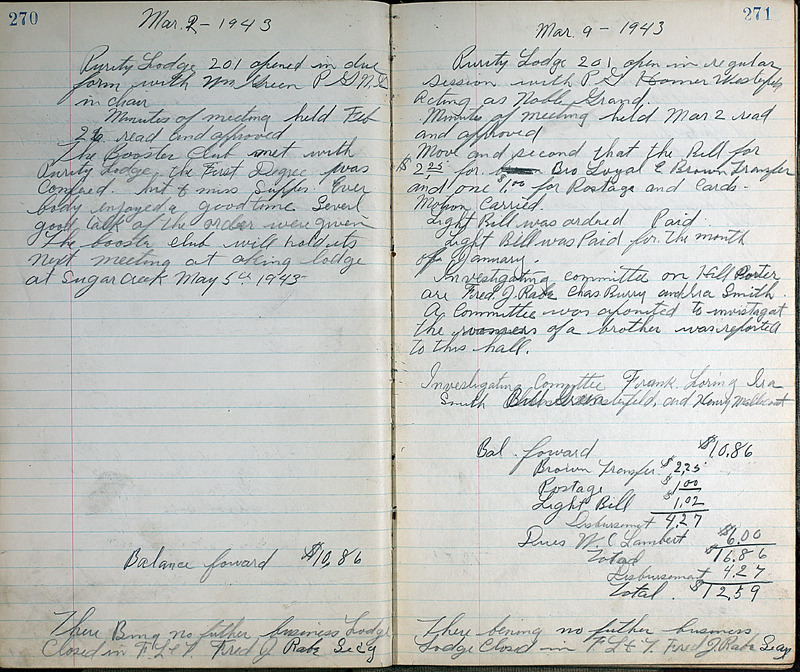 270
Mar. 2 - 1943
Purity Lodge 201 opened in due
form with Wm Green P S N G
in chair
Minutes of meeting held Feb
26 read and approved
The Booster Club met with
Purity Lodge, the First Degree was
Confered. but to miss Supper. Ever
body enjoyed a good time. Severl
good talk of the order were given
The booster club will hold its
next meeting at aking lodge
at Sugar Creek May 5th 1943
Balance foward $10.86
There Bing no futher business Lodge
Closed in F. L & T. Fred J. Rabe Secy
271
Mar 9 - 1943
Purity Lodge 201, open in regular
session with P.G Homer
acting as Noble Grand.
Minutes of meeting held Mar 2 read
and approved
Move and second that the Bill for
$2.25 for Bro Loyal E Brown Transfer
and one $1.00 for Postage and Cards.
Motion Carried.
Light Bill was ordered Paid.
Light Bill was Paid for the month
of January.
Investigating committee on Porter
are Fred J. Rabe Chas Burry and Ira Smith.
A Committee was aponited to invistagat
the of a brother was reported
to this hall.
Investigating Committee Frank Loring Ira
Smith and Henry
Bal. foward $10.86
Brown Transfer $2,25
Postage $1.00
Light Bill 1.02
Disbursment 4.27
Dues W C Lambert $6.00
Total $16.86
Disbursment 4.27
Total. $12.59
There bening no futher business
Lodge Closed in F. L & T. Fred J Rabe Secy